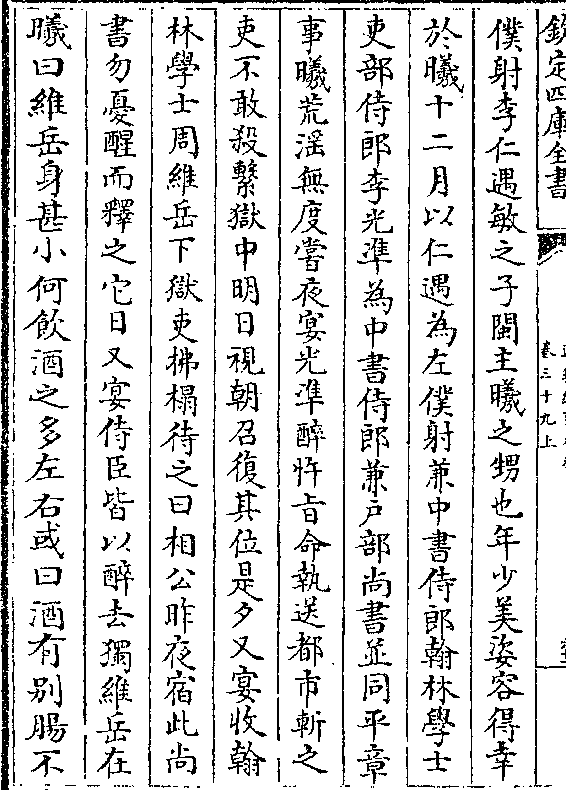 欽定四庫全書
卷三十九上
僕射李仁遇敏之子閩主曦之甥也年少美姿容得幸
於曦十二月以仁遇為左僕射兼中書侍郎翰林學士
吏部侍郎李光準為中書侍郎兼户部尚書並同平章
事曦荒淫無度嘗夜宴光準醉忤旨命執送都市斬之
吏不敢殺繫獄中明日視朝召復其位是夕又宴收翰
林學士周維岳下獄吏拂榻待之曰相公昨夜宿此尚
書勿憂醒而釋之它日又宴侍臣皆以醉去獨維岳在
曦曰維岳身甚小何飲酒之多左右或曰酒有别腸不